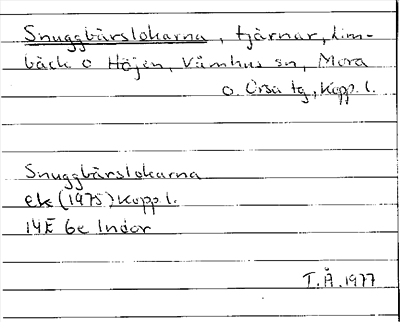 Snuggbärslokarna, tjärnar, Lim-
bäck o Höjen, Våmhus sn, Mora
o. Orsa tg, Kopp. l.
Snuggbärslokarna
ek (1975) Kopp l.
14E 6e Indor
T.Å. 1977